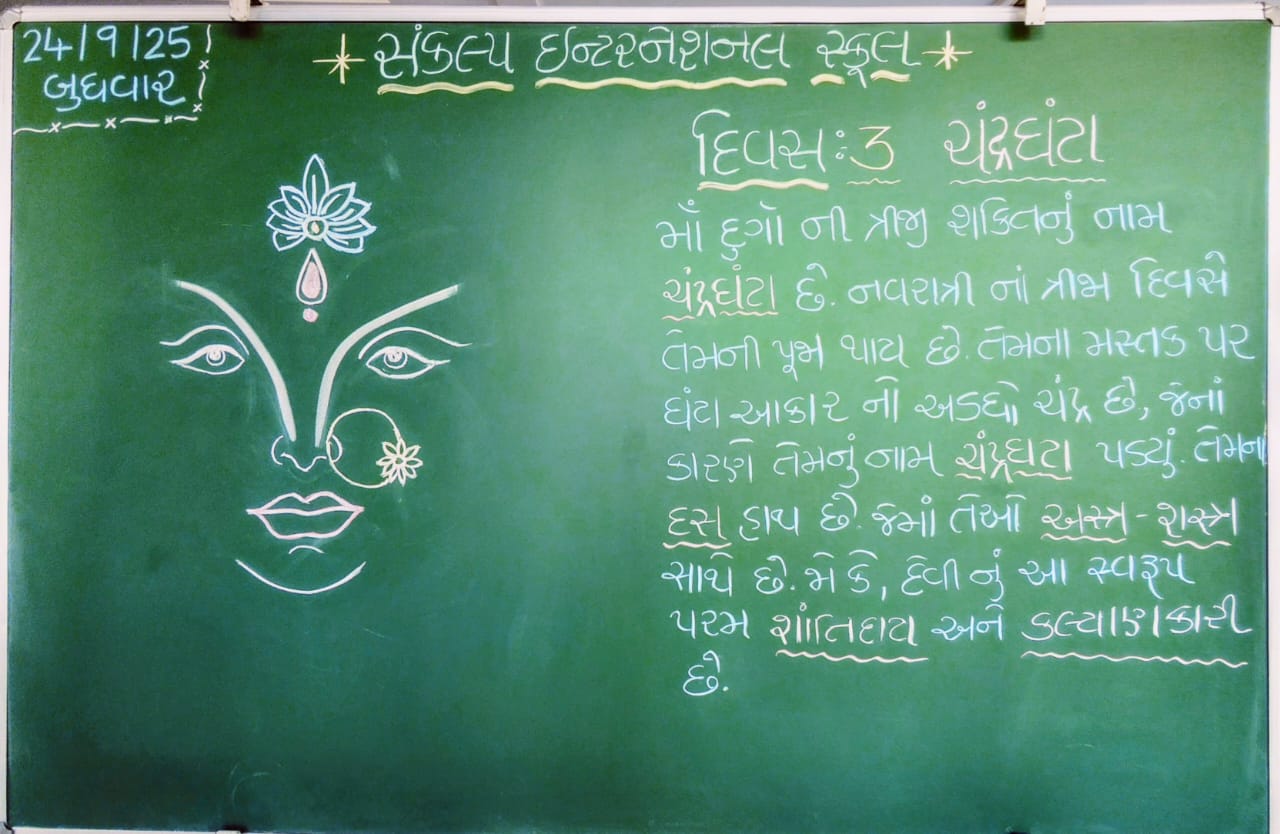 24/9/25
બુધવાર
સંકલ્પ ઇન્ટરનેશનલ સ્કૂલ
દિવસ:3 ચંદ્રઘંટા
માઁ દુર્ગા ની ત્રીજી શક્તિનું નામ
ચંદ્રઘંટા છે. નવરાત્રી નાં ત્રીજા દિવસે
તેમની પૂજા થાય છે. તેમના મસ્તક પર
ઘંટા આકાર નો અડધો ચંદ્ર છે, જેનાં
કારણે તેમનું નામ ચંદ્રઘટા પડ્યું. તેમના
દસ હાથ છે. જેમાં તેઓ અસ્ત્ર-શસ્ત્ર
સાથે છે. જો કે, દેવી નું આ સ્વરૂપ
પરમ શાંતિદાતા અને કલ્યાણકારી
છે.